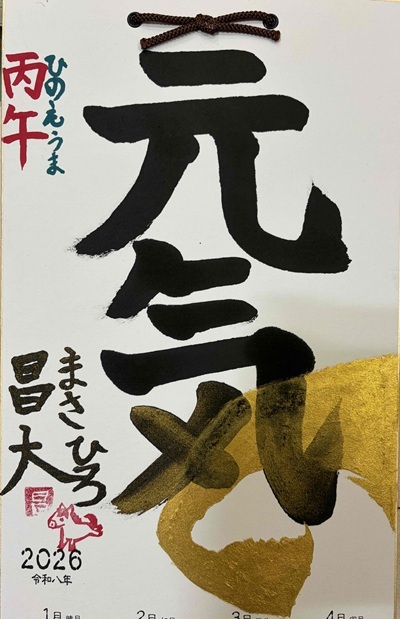 元気
丙午
ひのえうま
まさひろ
昌大
昌
2026
令和八年
1月 2月 3月 4月